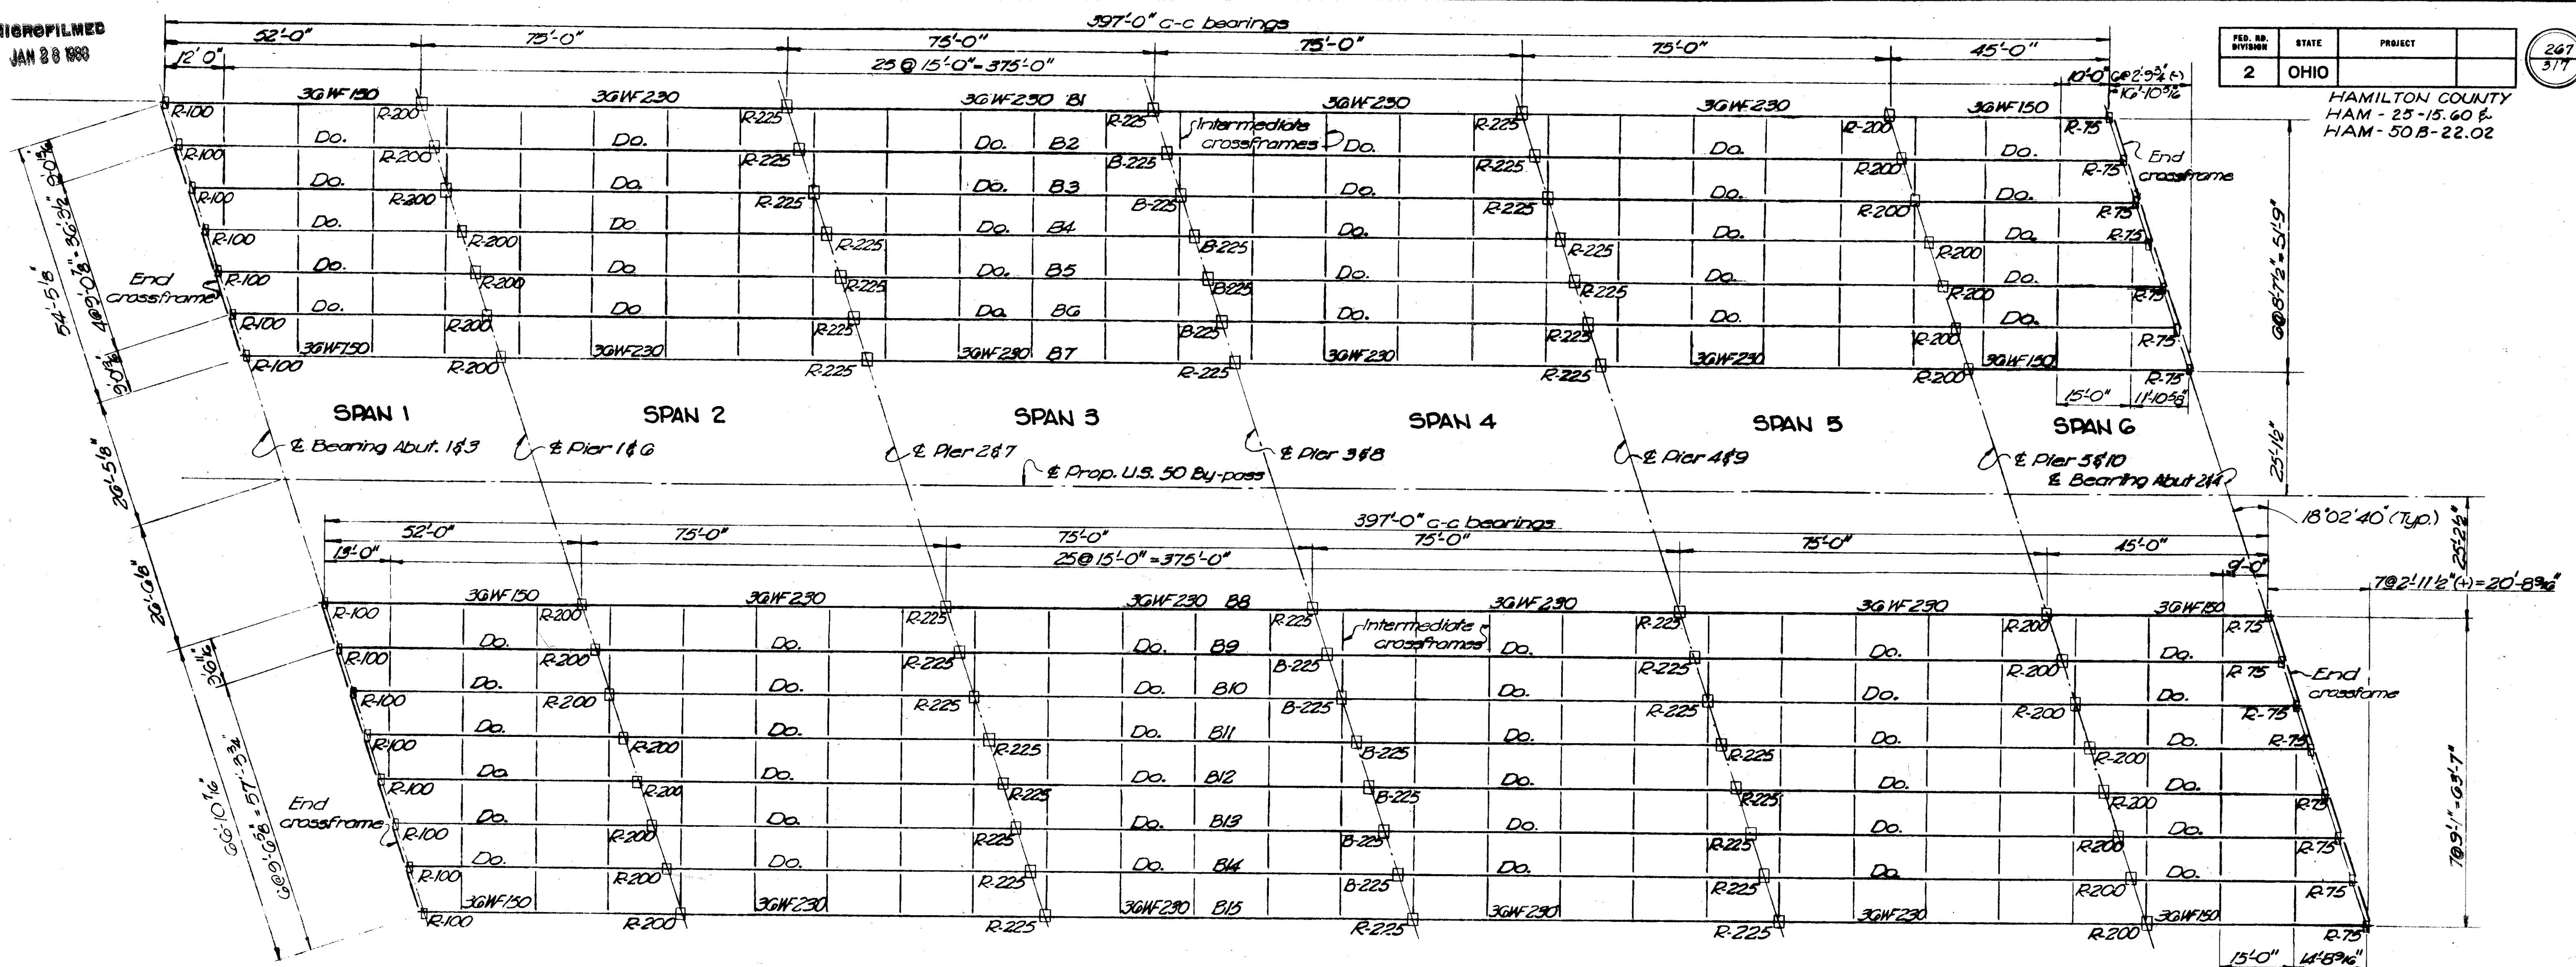 MICROFILMED
JAN 28 1988
FED. RD. DIVISION STATE PROJECT
2 OHIO
267
317
HAMILTON COUNTY
HAM - 25 - 15.60 &
HAM - 50 B - 22.02
397'-0" c-c bearings
52'-0" 75'-0" 75'-0" 75'-0" 75'-0" 45'-0"
12'0" 25 @ 15'-0" = 375'-0" 10'-0" 6@2'-9¾"(-)
=16'-10⅝"
36WF150 36WF230 36WF230 B1 36WF230 36WF230 36WF150
R-100 R-200 R-225 R-225 R-225 R-200 R-75
Intermediate crossframes
End crossframe
Do. Do. Do. B2 Do. Do. Do.
R-100 R-200 R-225 B-225 R-225 R-200 R-75
Do. Do. Do. B3 Do. Do. Do.
R-100 R-200 R-225 B-225 R-225 R-200 R-75
Do. Do Do. B4 Do. Do. Do.
R-100 R-200 R-225 B-225 R-225 R-200 R-75
Do. Do Do. B5 Do. Do. Do.
R-100 R-200 R-225 B-225 R-225 R-200 R-75
Do. Do Do. B6 Do. Do. Do.
R-100 R-200 R-225 B-225 R-225 R-200 R-75
36WF150 36WF230 36WF230 B7 36WF230 36WF230 36WF150
R-100 R-200 R-225 R-225 R-225 R-200 R-75
End crossframe
54'-5⅛"
4@9'-0⅞" = 36'-3½"
6@8'-7½" = 51'-9"
15'-0" 11'-10⅝"
SPAN 1 SPAN 2 SPAN 3 SPAN 4 SPAN 5 SPAN 6
℄ Bearing Abut. 1&3
℄ Pier 1&6
℄ Pier 2&7
℄ Pier 3&8
℄ Pier 4&9
℄ Pier 5&10
℄ Bearing Abut 2&4
℄ Prop. U.S. 50 By-pass
26'-5⅛"
25'-1½"
18°02'40" (Typ.)
25'-2½"
26'-6⅛"
397'-0" c-c bearings
52'-0" 75'-0" 75'-0" 75'-0" 75'-0" 45'-0"
13'-0" 25 @ 15'-0" = 375'-0" 9'-0"
7@2'-11½"(+)=20'-8 9/16"
36WF150 36WF230 36WF230 B8 36WF230 36WF230 36WF150
R-100 R-200 R-225 R-225 R-225 R-200 R-75
Intermediate crossframes
End crossfame
Do. Do. Do. B9 Do. Do. Do.
R-100 R-200 R-225 B-225 R-225 R-200 R-75
Do. Do. Do. B10 Do. Do. Do.
R-100 R-200 R-225 B-225 R-225 R-200 R-75
Do. Do. Do. B11 Do. Do. Do.
R-100 R-200 R-225 B-225 R-225 R-200 R-75
Do Do. Do. B12 Do. Do. Do.
R-100 R-200 R-225 B-225 R-225 R-200 R-75
Do. Do. Do. B13 Do. Do. Do.
R-100 R-200 R-225 B-225 R-225 R-200 R-75
Do. Do. Do. B14 Do. Do. Do.
R-100 R-200 R-225 B-225 R-225 R-200 R-75
36WF150 36WF230 36WF230 B15 36WF230 36WF230 36WF150
R-100 R-200 R-225 R-225 R-225 R-200 R-75
End crossframe
66'-10 7/16"
6@9'-6⅝" = 57'-3¾"
7@9'-1" = 63'-7"
15'-0" 14'-8 9/16"